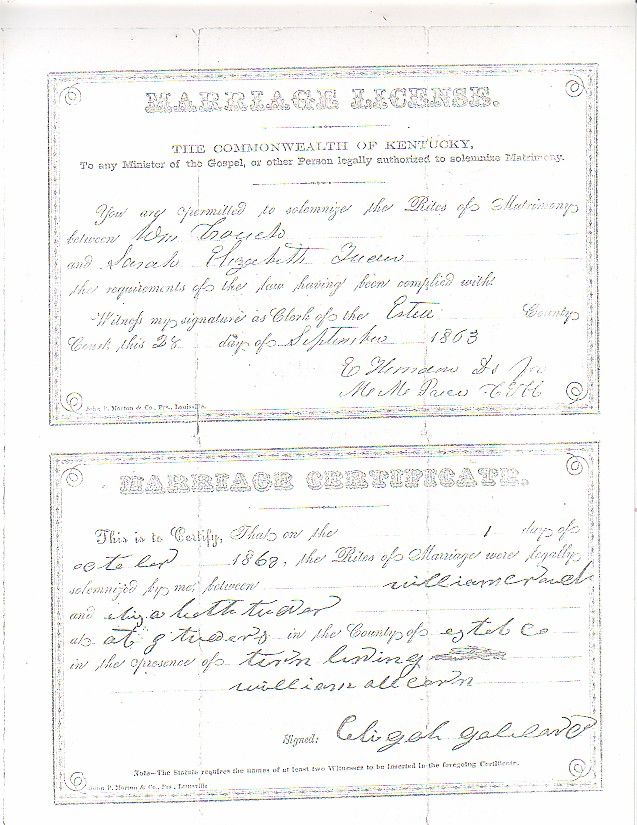 MARRIAGE LICENSE.
THE COMMONWEALTH OF KENTUCKY,
To any Minister of the Gospel, or other Person legally authorized to solemnize Matrimony.
You are permitted to solemnize the Rites of Matrimony
between Wm Crouch
and Sarah Elizabeth
the requirements of the law having been complied with.
Witness my signature as Clerk of the Estill County
Court, this 28 day of September 1863
John P. Morton & Co., Prs., Louisville.
MARRIAGE CERTIFICATE.
This is to Certify, That on the 1 day of
1863, the Rites of Marriage were legally
solemnized by me, between william crauch
and elizabeth tudor
at g tuders in the County of estel co
in the presence of
william
Signed: Eligah
Note—The Statute requires the names of at least two Witnesses to be inserted in the foregoing Certificate.
John P. Morton & Co., Prs., Louisville